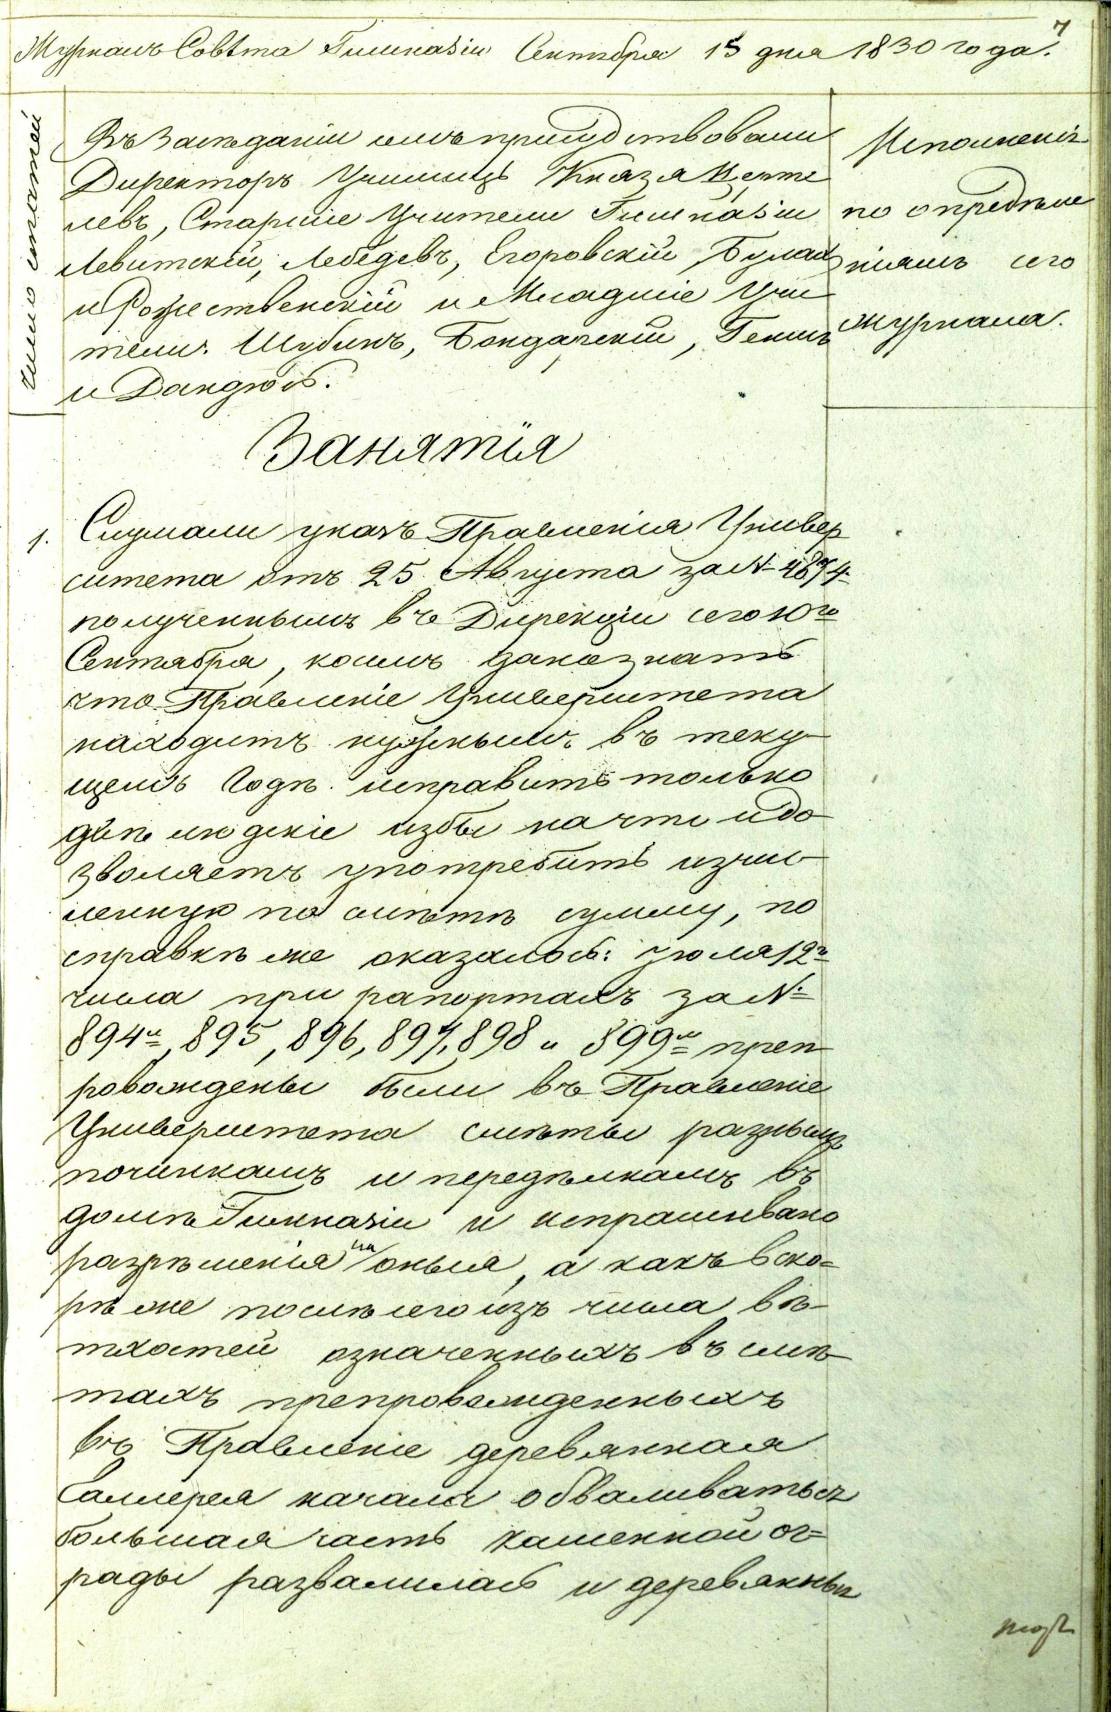 7
Журналъ Совѣта Гимназіи Сентября 15 дня 1830 года.
Число статей
Въ Засѣданіи семъ присудствовали
Директоръ Училищъ Князя Церте
левъ, Старшіе Учители Гимназіи
Левитскій, Лебедевъ, Егоровскій, Булах
и Рожественскій и Младшіе Учи
тели: Шубинъ, Бондарскій, Гениъ
и Дандюсъ.
Исполненія
по опредѣле
ніямъ сего
Журнала.
Занятія
1. Слушали указъ Правленія Универ
ситета отъ 25 Августа за № 4874
полученнымъ въ Дирекціи сего 10го
Сентября, коимъ даноезнать
что Правленіе Университета
находитъ нужнымъ въ теку
щемъ Годѣ исправить только
двѣ людскіе избы начти идо
зволяетъ употребить исчис
ленную по сметѣ сумму, по
справкѣ же оказалось: Іюля 12го
числа при рапортахъ за №
894м, 895, 896, 897, 898 и 899м преп
ровождены были въ Правленіе
Университета сметы разнымъ
починкамъ и передѣлкамъ въ
домѣ Гимназіи и испрашивано
разрѣшенія на оныя, а какъ вско=
рѣ же послѣ сего изъ числа вѣ
тхостей означенныхъ въ смѣ
тахъ препровожденныхъ
въ Правленіе деревянная
Галлерея начала обваливаться
большая часть каменной ог=
рады развалилась и деревянных